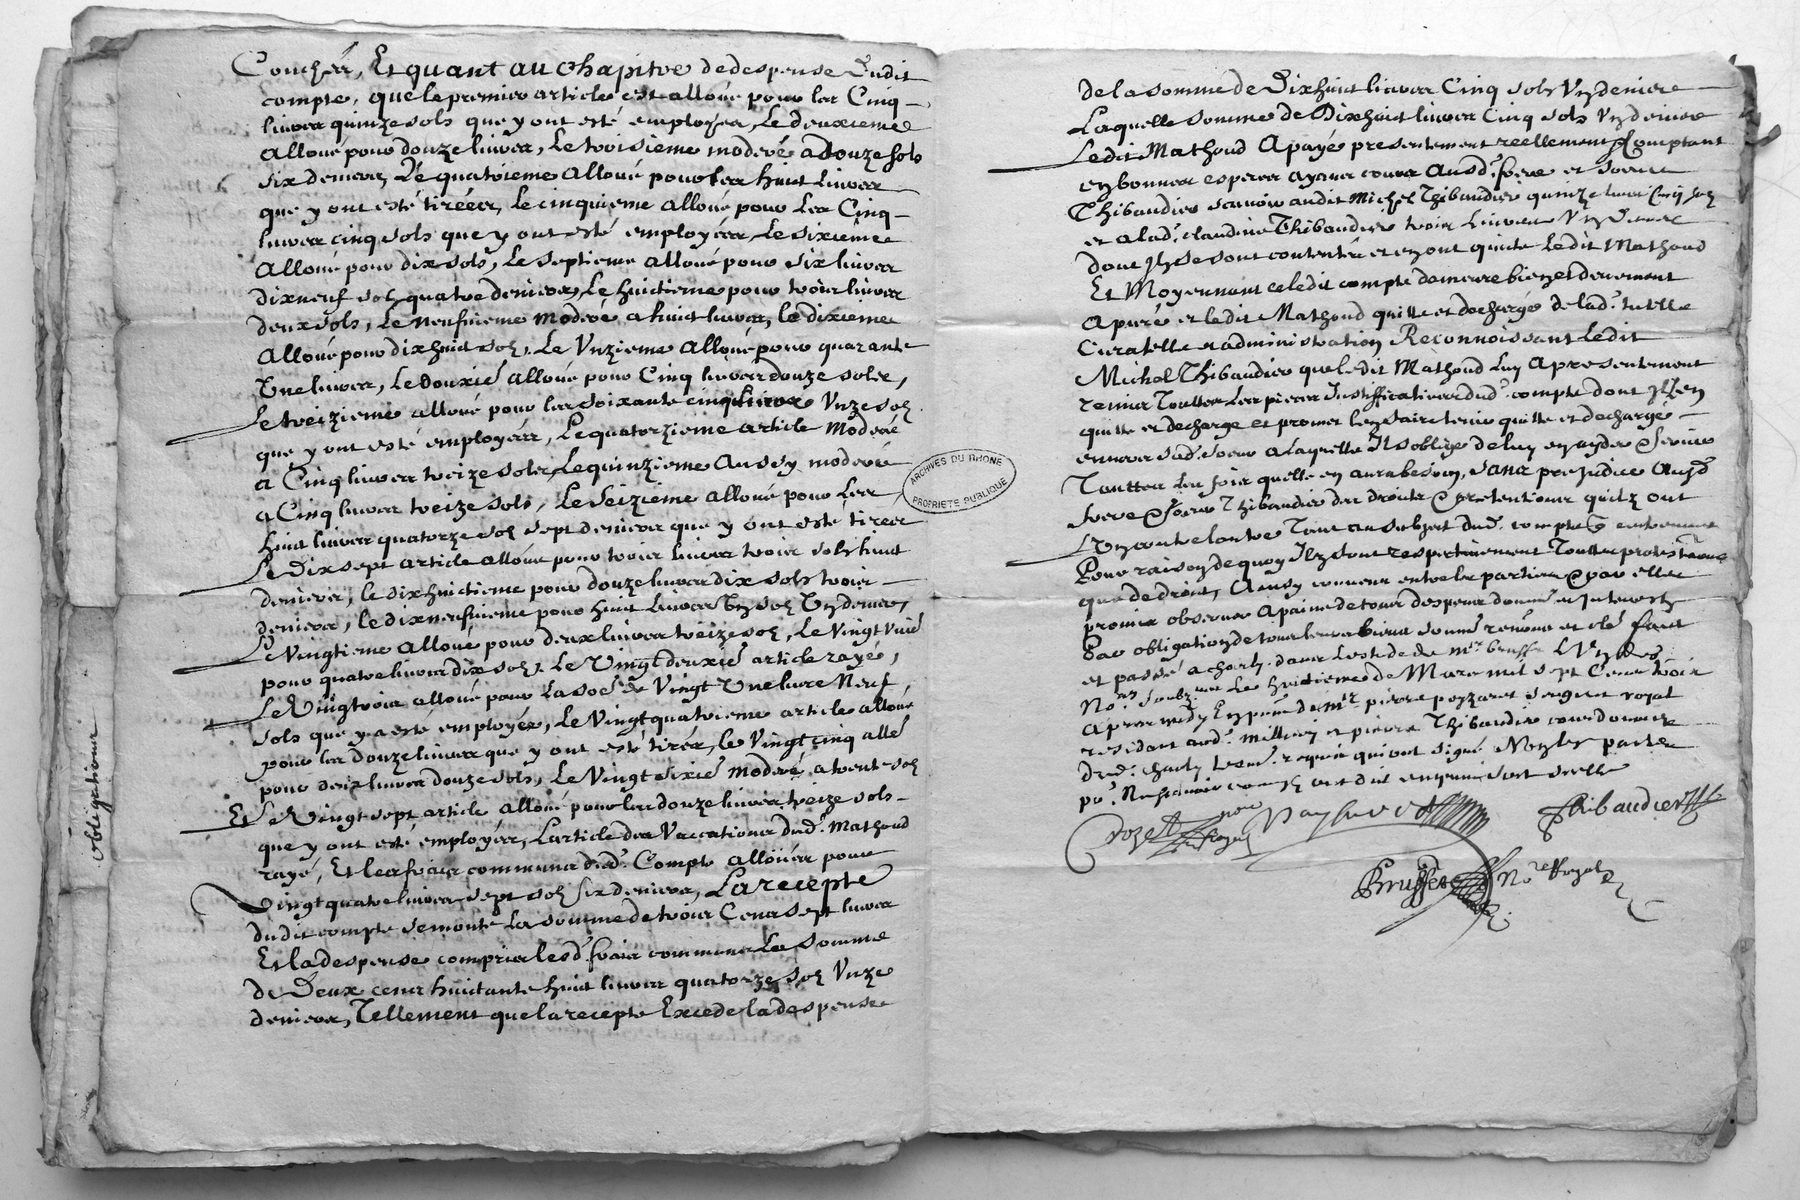 Couchéz, Et quant au chapitre de despense Dudit
compte, que le premier article est alloué pour les Cinq
livres quinze sols que y ont esté employez, Le deuxieme
Alloué pour douze livres, Le troisieme moderé a douze sols
six deniers, Le quatrieme Alloué pour les huict Livres
que y ont esté tiréés, Le cinquieme alloué pour Les Cinq
livres cinq sols que y ont esté employées, Le sixieme
Alloué pour dix sols, Le septieme alloué pour six livres
dixneuf sols quatre deniers, Le huictieme pour trois livres
deux sols, Le neufvieme moderé a huict livres, Le dixieme
Alloué pour dixhuict sols, Le Unzieme Alloué pour quarante
Une livres, Le Douxie alloué pour Cinq livres douze solz,
Le treizieme alloué pour les soixante cinq livres Unze solz
que y ont esté employées, Le quatorzieme article Moderé
a Cinq livres treize solz, Le quinzieme Aussy moderé
a Cinq livres treize sols, Le seizieme alloué pour Les
huict livres quatorze solz sept deniers que y ont esté tirees
Le Dix sept article alloué pour trois livres trois solz huict
deniers, Le dixhuictieme pour douze livres dix sols trois
deniers, Le dixneufvieme pour huict Livres Un sol Un denier,
Le Vingtieme Alloué pour deux livres treize solz, Le Vingt Unie
pour quatre livres dix solz, Le Vingt deuxie article rayé,
Le Vingtrois alloué pour La soe de Vingt Une livre Neuf
sols que y a esté employée, Le Vingt quatrieme article alloué
pour les douze livres que y ont esté tirés, le Vingt cinq allé
pour deux livres douze sols, Le Vingt sixie moderé a trente solz
Et Le Vingt sept article alloué pour les douze livres treize sols
que y ont esté employées, L'article des Vaccations dud. Mathoud
rayé, Et les frais communs dud. Compte alloüés pour
Vingt quatre livres sept solz six deniers, La recepte
dudit compte se monte La somme de trois Cens sept livres
Et la despense compris lesd. frais communs La somme
de Deux cens huictante huict livres quatorze solz Unze
deniers, Tellement que la recepte Excede la despense
obligations
ARCHIVES DU RHONE
PROPRIETE PUBLIQUE
de la somme de Dixhuict livres Cinq sols Un deniers
Laquelle somme de Dixhuict livres Cinq sols Un denier
Ledit Mathoud A payé presentement reellement & Comptant
en bonnes especes ayans cours Ausd. frere et soeur
Thibaudier scavoir audit Michel Thibaudier quinze livres Cinq solz
et a lad. claudine Thibaudier trois Livres Un denier
dont Ilz se sont contentés et en ont quitté Ledit Mathoud
Et Moyennant ce ledit compte demeure bien et deuement
Apuré et ledit Mathoud quitte et dechargé de lad. tutelle
Curatelle et administration Reconnoissant Ledit
Michel Thibaudier que ledit Mathoud Luy A presentement
remis Touttes Les pieces Justifficatives dud. compte dont Il l'en
quitte et decharge et promet l'en faire tenir quitte et dechargé
envers sad. soeur a Laquelle Il s'oblige de luy en ayder & servir
Touttes Les fois quelle en aura besoin, sans prejudice Ausd.
frere & soeur Thibaudier des droits & pretentions quilz ont
L'Un contre l'autre Tant au subjet dud. compte
Pour raison de quoy Ilz font respectivement Touttes protestations
que de droit, Ainsy convenu entre les parties & par elles
promis observer A paine de tous despens dommes et Interests
Par obligation de tous leurs biens soumi renon et cle fait
et passé a charly dans L'estude de Me Brusset L'Un des
Nores soubznés Le huictieme de Mars mil sept Cens trois
Apres midy En pnce de Me pierre sergent royal
residant aud. Millery et pierre Thibaudier cordonnier
dud. charly tesm. requis qui ont signé Non les parties
pr. ne scavoir comme Ilz ont dit enquis soit scellé
Thibaudier
Brusset No.re Royal